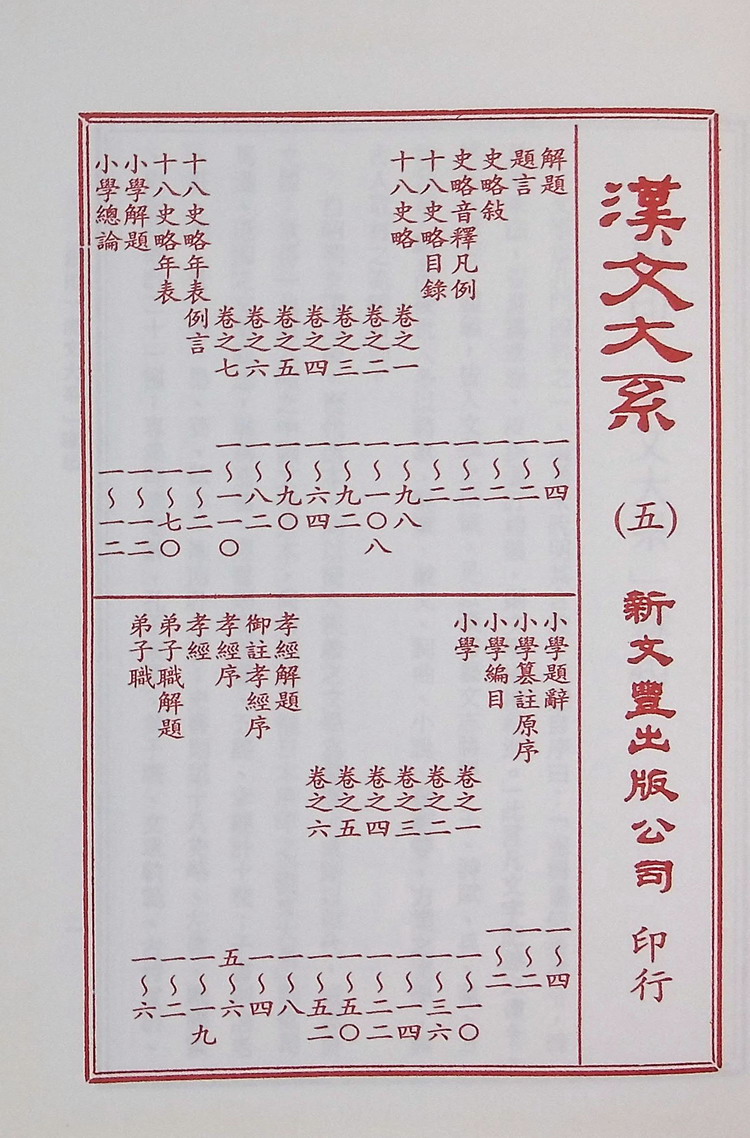 漢文大系 (五) 新文豐出版公司 印行
解題 一～四
題言 一～二
史略敍 一～二
史略音釋凡例 一～二
十八史略目錄 一～二
十八史略 卷之一 一～九八
卷之二 一～一〇八
卷之三 一～九二
卷之四 一～六四
卷之五 一～九〇
卷之六 一～八二
卷之七 一～一一〇
十八史略年表例言 一～二
十八史略年表 一～七〇
小學解題 一～一二
小學總論 一～一二
小學題辭 一～四
小學纂註原序 一～二
小學編目 一～二
小學 卷之一 一～一〇
卷之二 一～三六
卷之三 一～一四
卷之四 一～二二
卷之五 一～五〇
卷之六 一～五二
孝經解題 一～八
御註孝經序 一～四
孝經序 五～六
孝經 一～一九
弟子職解題 一～二
弟子職 一～六